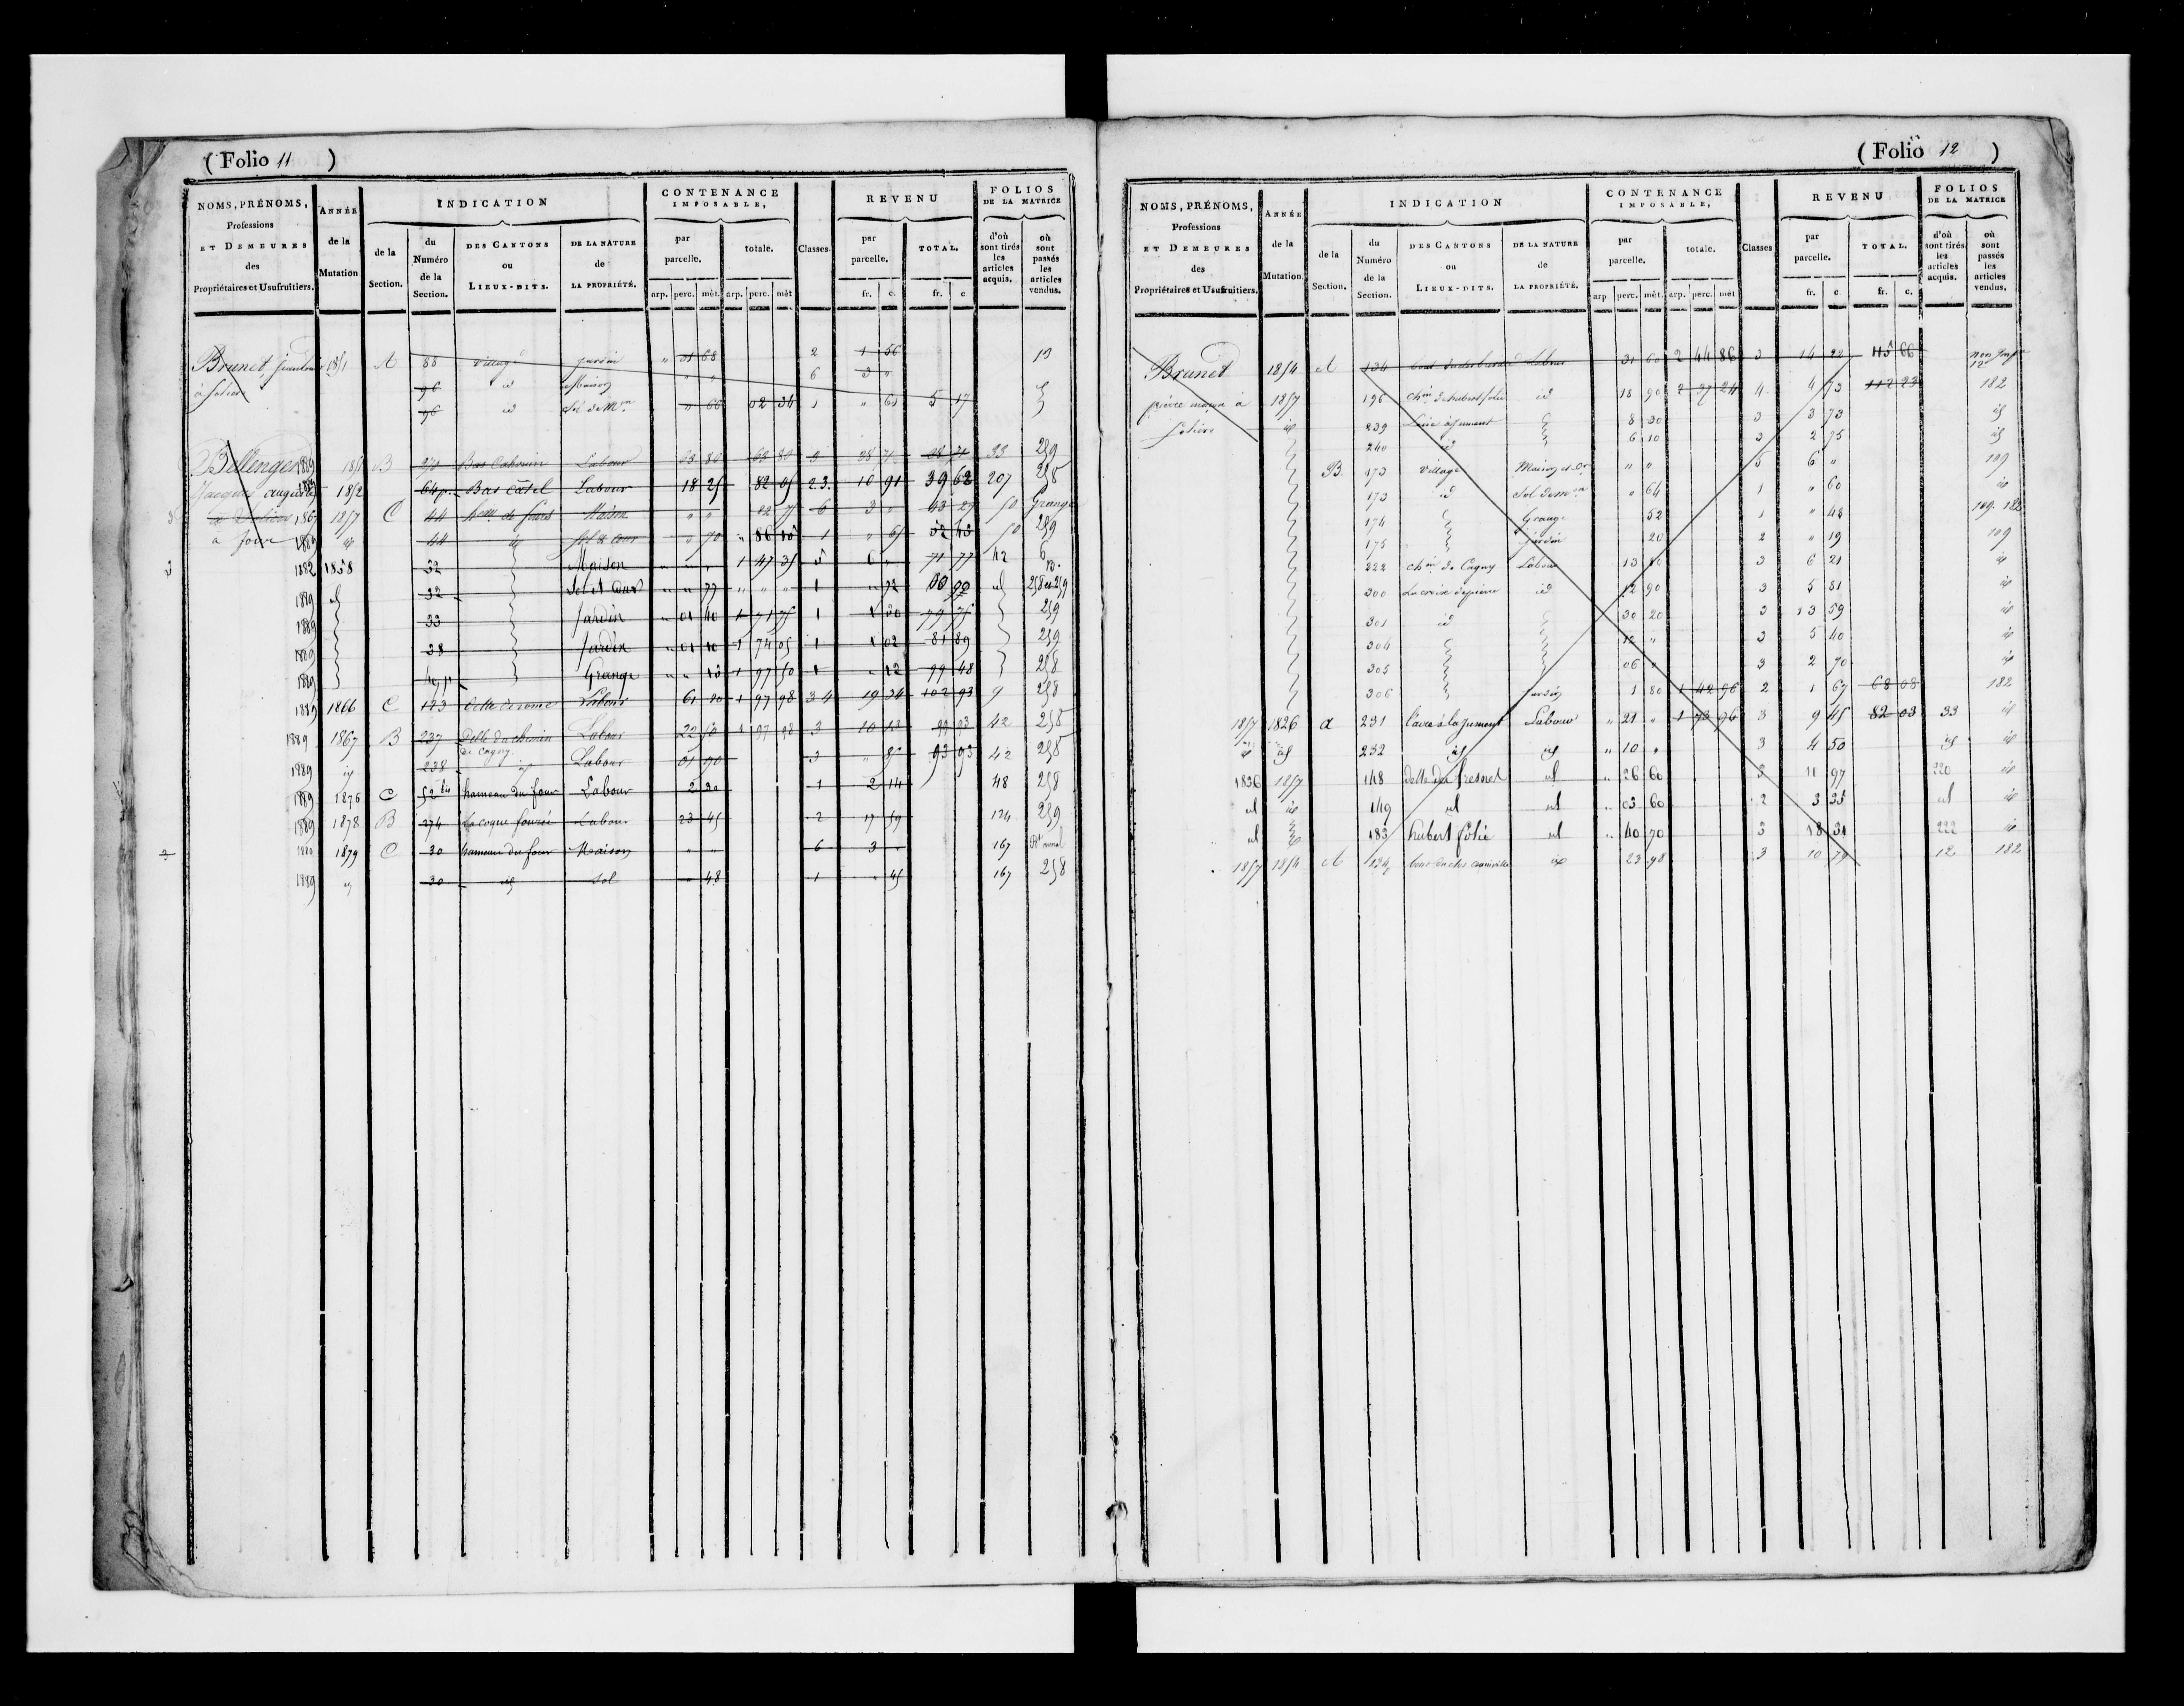 ( Folio 11 )
NOMS, PRÉNOMS, Professions ET DEMEURES des Propriétaires et Usufruitiers.
ANNÉE de la Mutation
INDICATION
de la Section.
du Numéro de la Section.
DES CANTONS ou LIEUX-DITS.
DE LA NATURE de LA PROPRIÉTÉ.
CONTENANCE IMPOSABLE,
par parcelle.
totale.
arp. perc. mèt. arp. perc. mèt
Classes.
REVENU
par parcelle.
TOTAL.
fr. c. fr. c
FOLIOS DE LA MATRICE
d'où sont tirés les articles acquis.
où sont passés les articles vendus.
Brunet, A 88 village jardin " 01 68 2 1 56 13
à 96 id Maison " " 6 3 "
96 id Sol de Mon " 66 02 34 1 " 61 5 17
Bellenger B Labour 63 80 63 80 3 28 71 28 71 33 259
Jacques auguste 1852 64 p. Bas catel Labour 18 25 82 05 2.3. 10 91 39 62 207 258
1867 1857 C 44 Maison " " 82 75 6 3 " 43 29 50 Grange
à four 1889 id 44 id Sol & cour " 70 1 " 65 50 259
1882 1858 32 Maison " " " 1 47 35 5 6 " 71 77 42
1889 id 32 Sol et Cour " " 77 " " " 1 " 72 id 258 et 259
1889 33 Jardin " 01 40 1 71 75 1 79 75 259
1889 38 Jardin " 01 10 1 74 05 1 1 02 81 89 259
1889 Grange 1 97 50 1 " 12 99 48 258
1889 1866 C 123 Labour 61 20 1 97 98 3 4 19 34 102 93 9 258
1889 1867 B 237 Delle du chemin de Cagny. Labour 22 50 1 97 98 3 10 13 99 93 42 258
1889 id 238 id Labour 01 90 3 " 85 93 93 42 258
1889 1876 C 52 bis hameau du four Labour 2 30 1 2 14 48 258
1889 1878 B 274 Labour 23 45 2 17 59 124 259
1879 C 30 hameau du four Maison " " 6 3 " 167
1889 id 30 id Sol " 48 1 " 45 167 258
( Folio 12 )
NOMS, PRÉNOMS, Professions ET DEMEURES des Propriétaires et Usufruitiers.
ANNÉE de la Mutation.
INDICATION
de la Section.
du Numéro de la Section.
DES CANTONS ou LIEUX-DITS.
DE LA NATURE de LA PROPRIÉTÉ.
CONTENANCE IMPOSABLE,
par parcelle.
totale.
arp perc. mèt. arp. perc. mèt
Classes
REVENU
par parcelle.
TOTAL.
fr. c fr. c.
FOLIOS DE LA MATRICE
d'où sont tirés les articles acquis.
où sont passés les articles vendus.
Brunet 1854 A 134 Labour 31 60 2 44 86 3 14 22 115 66
pierre maçon à 1857 196 id 18 90 2 37 24 4. 4 73 112 23 182
id 239 8 30 3 3 73 id
240 id 6 10 3 2 75 id
B 173 village Maison " " 5 6 " 109
173 id Sol de mon " 64 1 " 60 id
174 Grange 52 1 " 48 109. 182
175 jardin 20 2 " 19 109
222 chin de Cagny Labour 13 80 3 6 21 id
300 id 12 90 3 5 81 id
301 id 30 20 3 13 59 id
304 12 " 3 5 40 id
305 06 " 3 2 70 id
306 jardin 1 80 1 42 96 2 1 67 68 08 182
1857 1826 a 231 Labour " 21 " 1 73 96 3 9 45 82 03 33 id
id id 232 id id " 10 " 3 4 50 id id
1836 1857 148 delle du fresnel id " 26 60 3 11 97 220 id
id id 149 id id " 03 60 2 3 35 id id
id id 183 hubert folie id " 40 70 3 18 31 222 id
1857 1854 A id 23 98 3 10 79 12 182